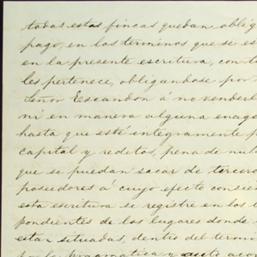 todas estas fincas quedan oblig
pago, en los terminos que se es
en la presente escritura, con t
les pertenece, obligandose por
Señor Escandon á no venderl
ni en manera alguna enage
hasta que esté integramente p
capital y reditos, pena de nul
que se puedan sacar de tercero
poseedores á cuyo efecto consien
esta escritura se registre en los
pondientes de los lugares donde
estar situadas, dentro del termi
por la pragmatica y auto aco